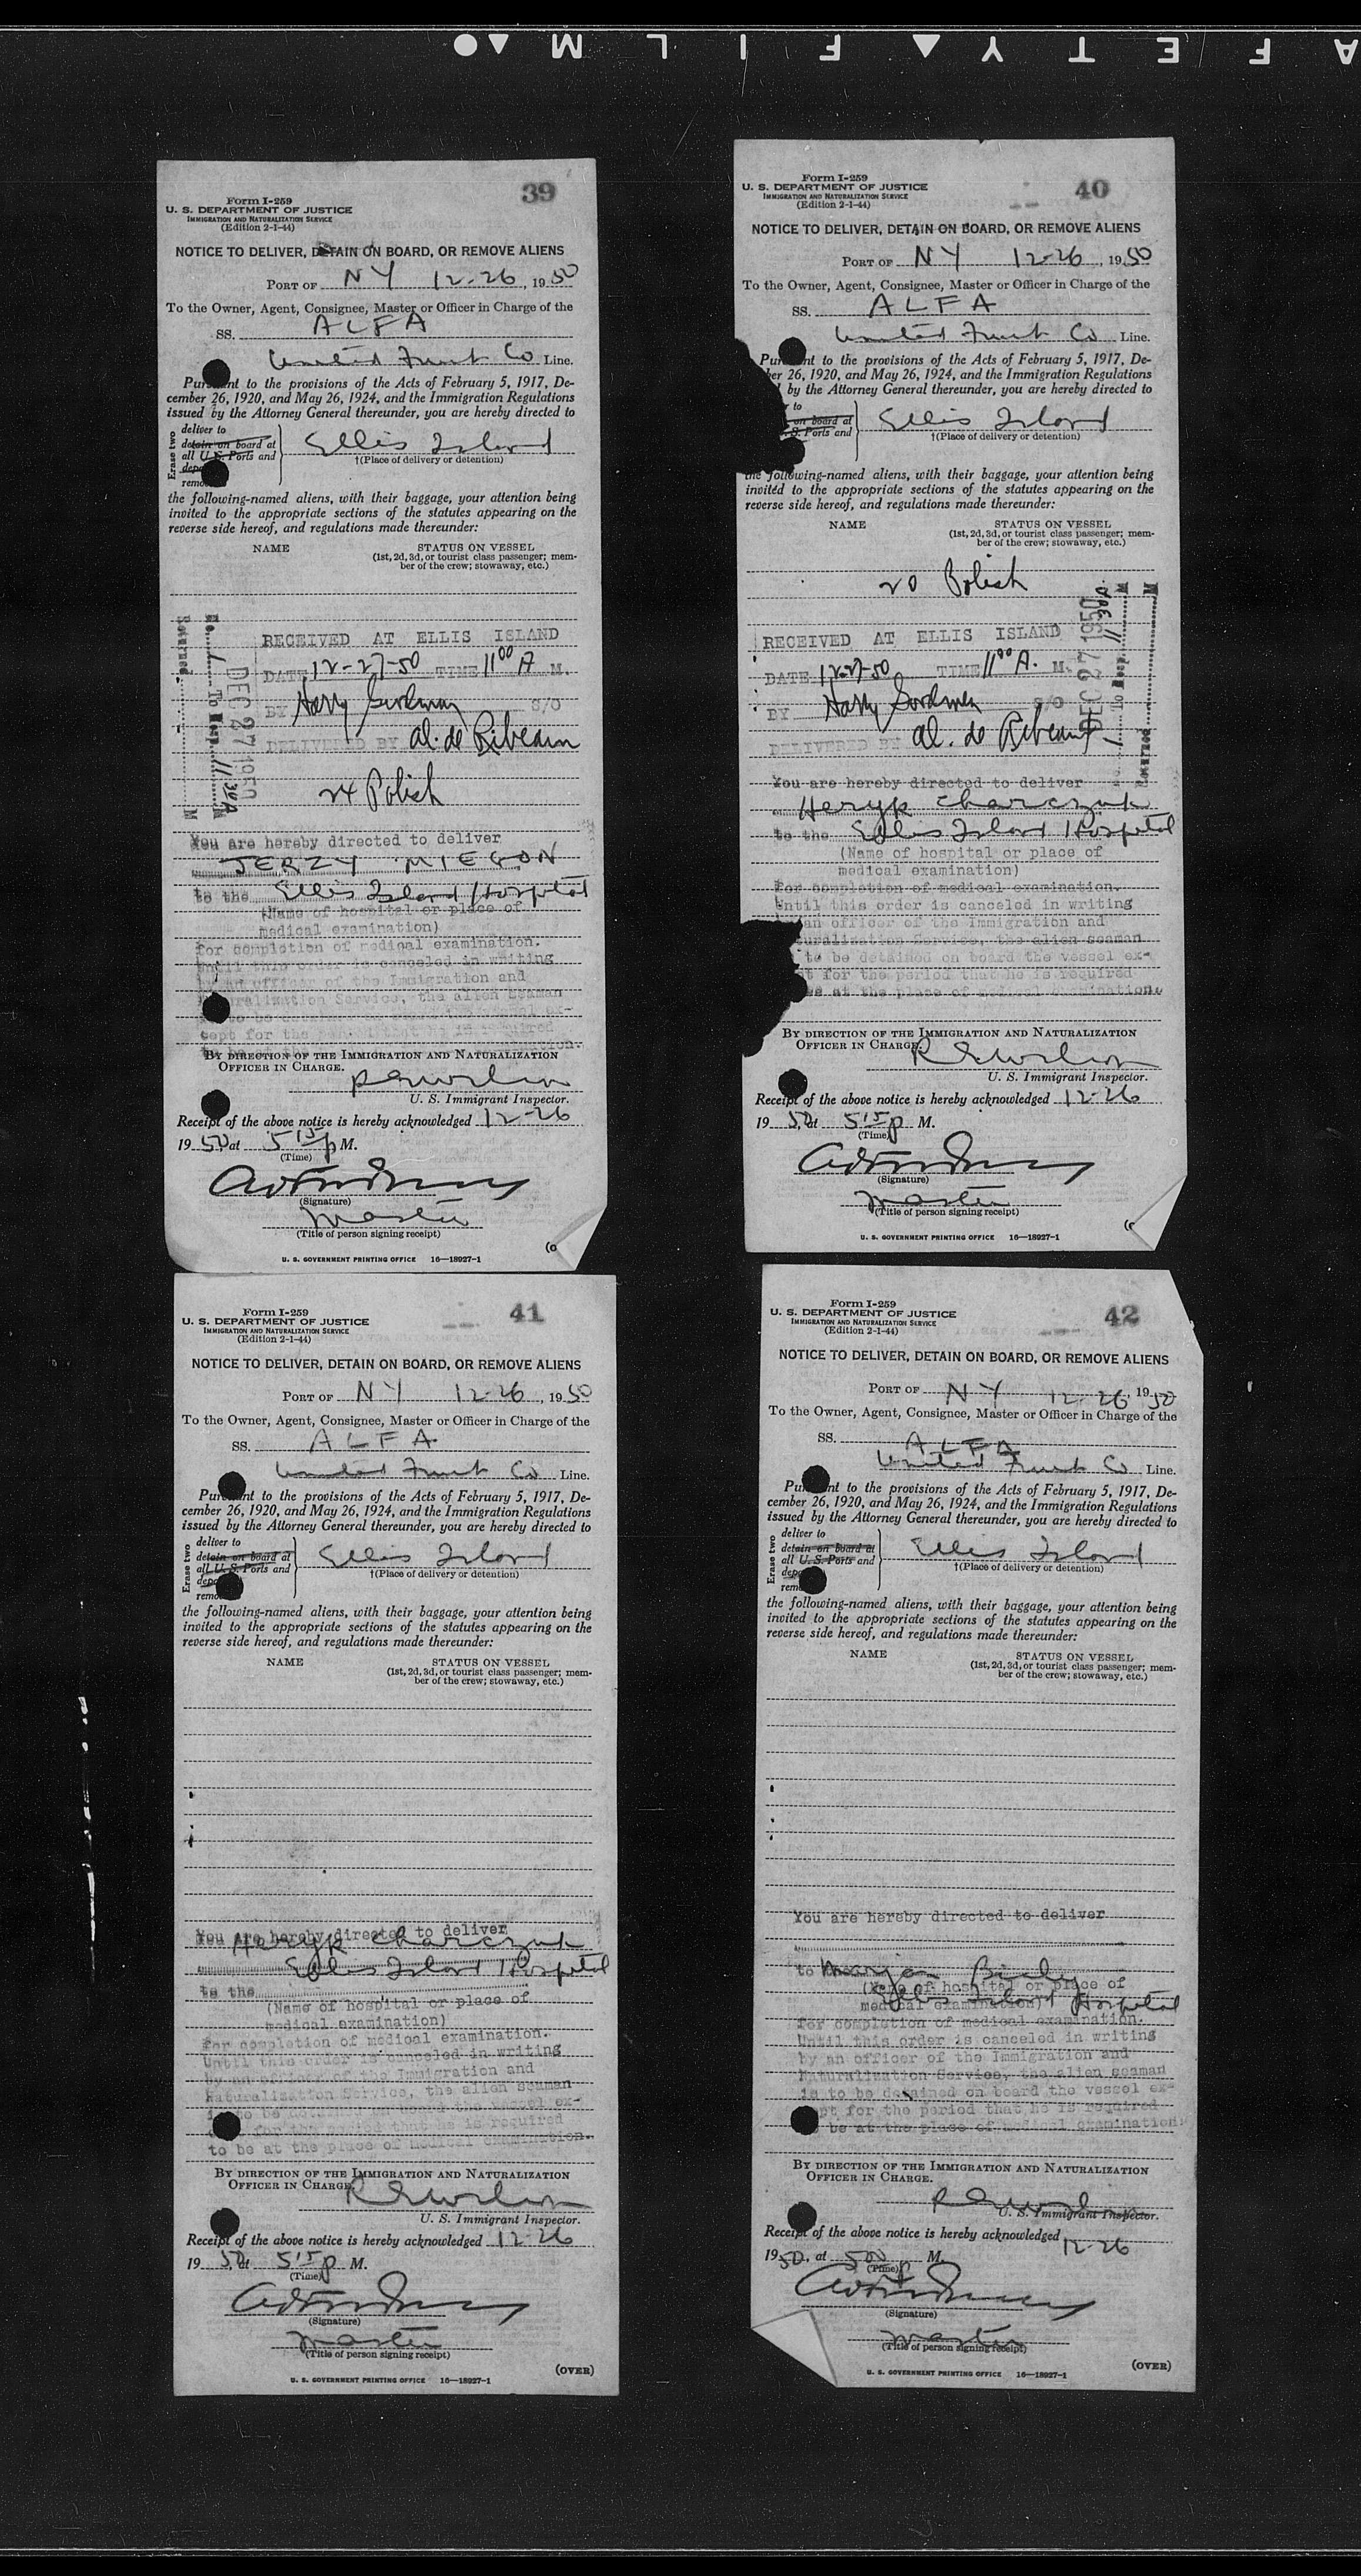 SAFETY FILM
39
Form I-259
U. S. DEPARTMENT OF JUSTICE
IMMIGRATION AND NATURALIZATION SERVICE
(Edition 2-1-44)
NOTICE TO DELIVER, DETAIN ON BOARD, OR REMOVE ALIENS
PORT OF NY 12-26, 1950
To the Owner, Agent, Consignee, Master or Officer in Charge of the
SS. ALFA
United Fruit Co Line.
Pursuant to the provisions of the Acts of February 5, 1917, De-
cember 26, 1920, and May 26, 1924, and the Immigration Regulations
issued by the Attorney General thereunder, you are hereby directed to
Erase two
deliver to
detain on board at
all U. S. Ports and
Ellis Island
†(Place of delivery or detention)
the following-named aliens, with their baggage, your attention being
invited to the appropriate sections of the statutes appearing on the
reverse side hereof, and regulations made thereunder:
NAME STATUS ON VESSEL
(1st, 2d, 3d, or tourist class passenger; mem-
ber of the crew; stowaway, etc.)
RECEIVED AT ELLIS ISLAND
DATE 12-27-50 TIME 11 00 A M.
BY Harry S/O
DELIVERED BY al. de
Returned M
No. 1 To Hosp. 11 30 A M
DEC 27 1950
24 Polish
You are hereby directed to deliver
JERZY MIEGON
to the Ellis Island Hospital
(Name of hospital or place of
medical examination)
for completion of medical examination.
Until this order is canceled in writing
by an officer of the Immigration and
Naturalization Service, the alien seaman
BY DIRECTION OF THE IMMIGRATION AND NATURALIZATION
OFFICER IN CHARGE.
U. S. Immigrant Inspector.
Receipt of the above notice is hereby acknowledged 12-26
1950, at 5 15 p M.
(Time)
(Signature)
Master
(Title of person signing receipt)
U. S. GOVERNMENT PRINTING OFFICE 16—18927-1
40
Form I-259
U. S. DEPARTMENT OF JUSTICE
IMMIGRATION AND NATURALIZATION SERVICE
(Edition 2-1-44)
NOTICE TO DELIVER, DETAIN ON BOARD, OR REMOVE ALIENS
PORT OF NY 12-26, 1950
To the Owner, Agent, Consignee, Master or Officer in Charge of the
SS. ALFA
United Fruit Co Line.
Pursuant to the provisions of the Acts of February 5, 1917, De-
ber 26, 1920, and May 26, 1924, and the Immigration Regulations
by the Attorney General thereunder, you are hereby directed to
to
on board at
S. Ports and
Ellis Island
†(Place of delivery or detention)
the following-named aliens, with their baggage, your attention being
invited to the appropriate sections of the statutes appearing on the
reverse side hereof, and regulations made thereunder:
NAME STATUS ON VESSEL
(1st, 2d, 3d, or tourist class passenger; mem-
ber of the crew; stowaway, etc.)
20 Polish
RECEIVED AT ELLIS ISLAND
DATE 12-27-50 TIME 11 00 A. M.
BY Harry S/O
DELIVERED BY al. de
DEC 27 1950
You are hereby directed to deliver
Heryk Charczuk
to the Ellis Island Hospital
(Name of hospital or place of
medical examination)
for completion of medical examination.
Until this order is canceled in writing
an officer of the Immigration and
uralization Service, the alien seaman
to be detained on board the vessel ex-
t for the period that he is required
be at the place of medical examination.
BY DIRECTION OF THE IMMIGRATION AND NATURALIZATION
OFFICER IN CHARGE.
U. S. Immigrant Inspector.
Receipt of the above notice is hereby acknowledged 12-26
1950, at 5 15 p M.
(Time)
(Signature)
Master
(Title of person signing receipt)
U. S. GOVERNMENT PRINTING OFFICE 16—18927-1
41
Form I-259
U. S. DEPARTMENT OF JUSTICE
IMMIGRATION AND NATURALIZATION SERVICE
(Edition 2-1-44)
NOTICE TO DELIVER, DETAIN ON BOARD, OR REMOVE ALIENS
PORT OF NY 12-26, 1950
To the Owner, Agent, Consignee, Master or Officer in Charge of the
SS. ALFA
United Fruit Co Line.
Pursuant to the provisions of the Acts of February 5, 1917, De-
cember 26, 1920, and May 26, 1924, and the Immigration Regulations
issued by the Attorney General thereunder, you are hereby directed to
Erase two
deliver to
detain on board at
all U. S. Ports and
Ellis Island
†(Place of delivery or detention)
the following-named aliens, with their baggage, your attention being
invited to the appropriate sections of the statutes appearing on the
reverse side hereof, and regulations made thereunder:
NAME STATUS ON VESSEL
(1st, 2d, 3d, or tourist class passenger; mem-
ber of the crew; stowaway, etc.)
You are hereby directed to deliver
Heryk Charczuk
Ellis Island Hospital
to the
(Name of hospital or place of
medical examination)
for completion of medical examination.
Until this order is canceled in writing
by an officer of the Immigration and
Naturalization Service, the alien seaman
is to be detained on board the vessel ex-
for the period that he is required
to be at the place of medical examination.
BY DIRECTION OF THE IMMIGRATION AND NATURALIZATION
OFFICER IN CHARGE.
U. S. Immigrant Inspector.
Receipt of the above notice is hereby acknowledged 12-26
1950, at 5 15 p M.
(Time)
(Signature)
Master
(Title of person signing receipt)
(OVER)
U. S. GOVERNMENT PRINTING OFFICE 16—18927-1
42
Form I-259
U. S. DEPARTMENT OF JUSTICE
IMMIGRATION AND NATURALIZATION SERVICE
(Edition 2-1-44)
NOTICE TO DELIVER, DETAIN ON BOARD, OR REMOVE ALIENS
PORT OF NY 12-26, 1950
To the Owner, Agent, Consignee, Master or Officer in Charge of the
SS. ALFA
United Fruit Co Line.
Pursuant to the provisions of the Acts of February 5, 1917, De-
cember 26, 1920, and May 26, 1924, and the Immigration Regulations
issued by the Attorney General thereunder, you are hereby directed to
Erase two
deliver to
detain on board at
all U. S. Ports and
Ellis Island
†(Place of delivery or detention)
the following-named aliens, with their baggage, your attention being
invited to the appropriate sections of the statutes appearing on the
reverse side hereof, and regulations made thereunder:
NAME STATUS ON VESSEL
(1st, 2d, 3d, or tourist class passenger; mem-
ber of the crew; stowaway, etc.)
You are hereby directed to deliver
to Maryan
(Name of hospital or place of
Ellis Island Hospital
medical examination)
for completion of medical examination.
Until this order is canceled in writing
by an officer of the Immigration and
Naturalization Service, the alien seaman
is to be detained on board the vessel ex-
cept for the period that he is required
be at the place of medical examination.
BY DIRECTION OF THE IMMIGRATION AND NATURALIZATION
OFFICER IN CHARGE.
U. S. Immigrant Inspector.
Receipt of the above notice is hereby acknowledged 12-26
1950, at 5 00 p M.
(Time)
(Signature)
Master
(Title of person signing receipt)
(OVER)
U. S. GOVERNMENT PRINTING OFFICE 16—18927-1